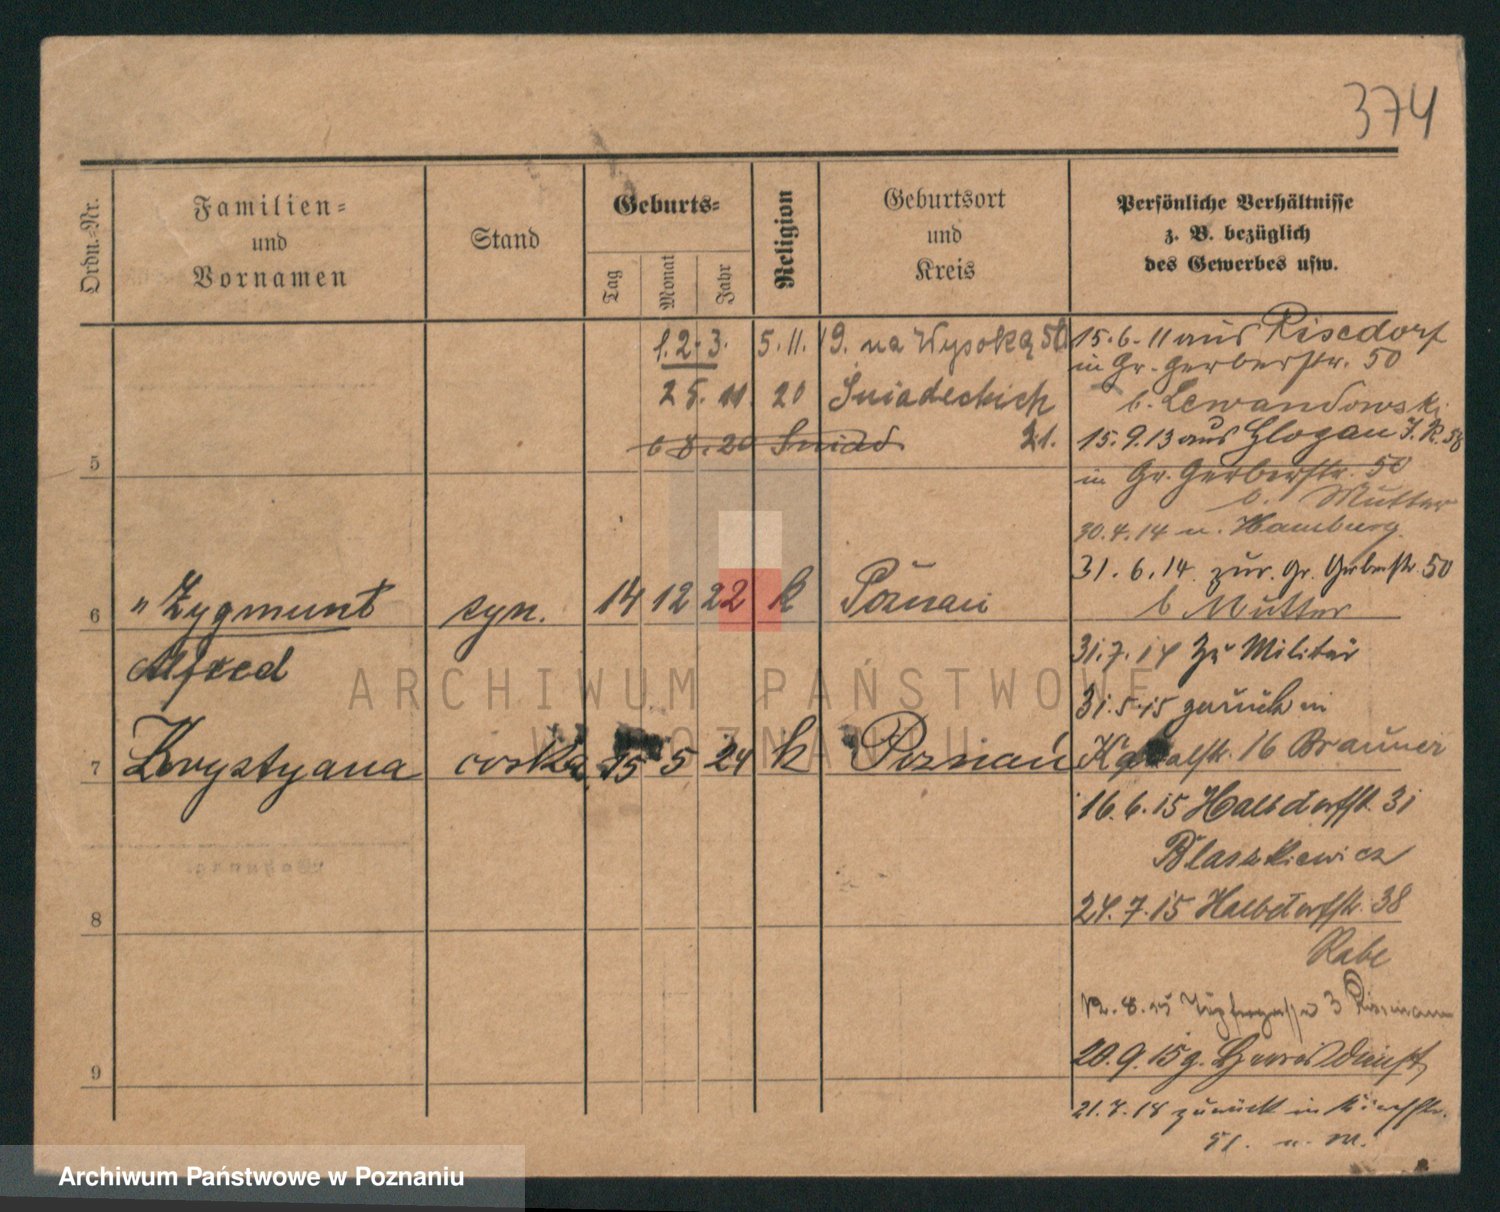 374
Ordn.-Nr.
Familien-
und
Vornamen
Stand
Geburts-
Tag
Monat
Jahr
Religion
Geburtsort
und
Kreis
Persönliche Verhältnisse
z. B. bezüglich
des Gewerbes usw.
1.2.3. 5.11.19. na Wysoką 50
25. 11. 20 Śniadeckich
6 8.20 Śniad 21.
5
6 " Zygmunt syn. 14 12 22 k Poznań
Alfred
7 Krystyana córka 15 5 24 k Poznań
8
9
15.6.11 aus Risedorf
in Gr. Gerberstr. 50
b. Lewandowski
15.9.13 aus Glogau I.R. 58
in Gr. Gerberstr. 50
b. Mutter
30.4.14 n. Hamburg
31.6.14 zur. Gr. Gerberstr. 50
b Mutter
31.7.14 zu Militär
31.5.15 zurück in
16 Brauner
16.6.15 Halbdorfstr. 31
Blaszkiewicz
24.7.15 Halbdorfstr. 38
Rabe
12.8.15 3
20.9.15 z.
21.8.18 zurück in
51. u. M.
ARCHIWUM PAŃSTWOWE
W POZNANIU
Archiwum Państwowe w Poznaniu